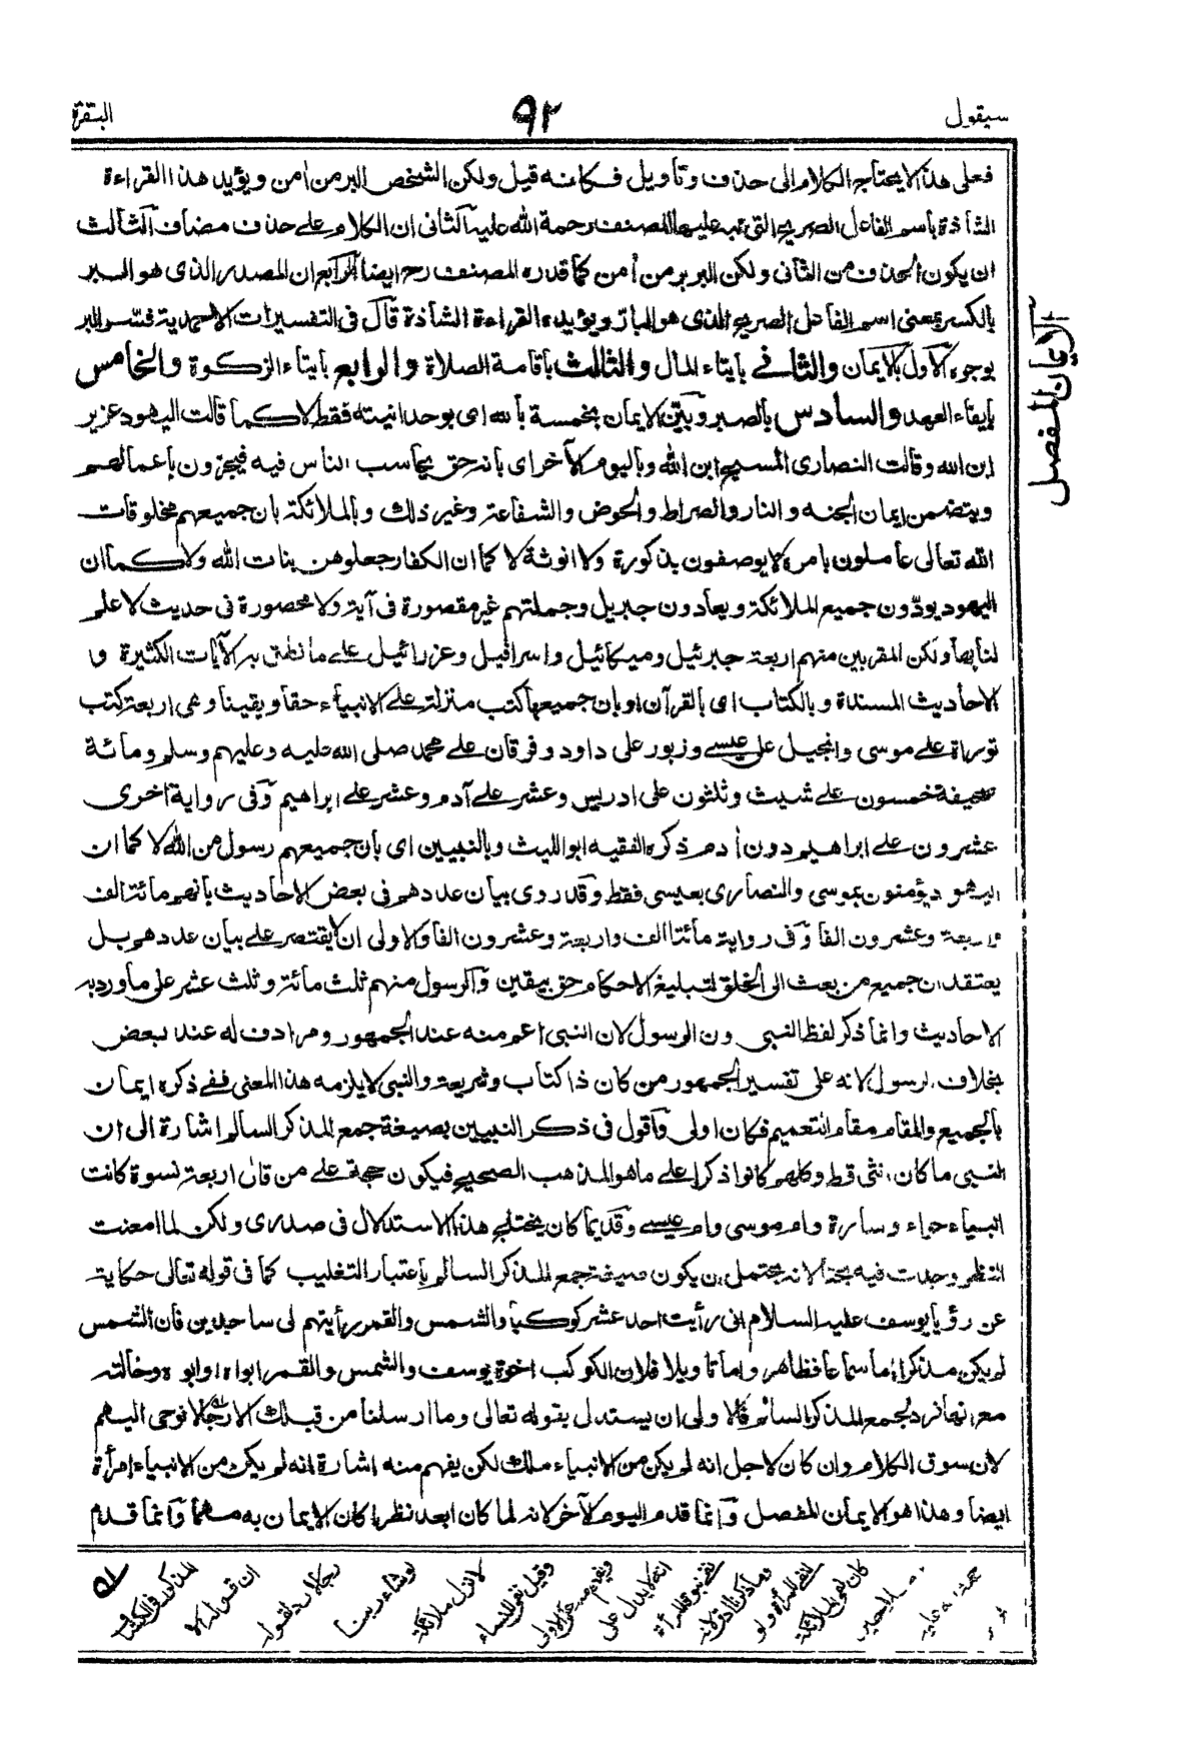 سيقول
٩٢
البقرة
فعلى هذا لا يحتاج الكلام الى حذف وتأويل فكانه قيل ولكن الشخص البر من أمن ويؤيد هذا القراءة
الشاذة باسم الفاعل الصريح التى نبه عليها المصنف رحمة الله عليه الثانى ان الكلام على حذف مضاف الثالث
ان يكون الحذف من الثانى ولكن البر بر من أمن كما قدره المصنف رح ايضا الرابع ان المصدر الذى هو البر
بالكسر بمعنى اسم الفاعل الصريح الذى هو البار ويؤيده القراءة الشاذة قال فى التفسيرات الاحمدية فسر البر
بوجوه الاول بالايمان والثانى بايتاء المال والثالث باقامة الصلاة والرابع بايتاء الزكوة والخامس
بايفاء العهد والسادس بالصبر وبين الايمان بخمسة بالله اى بوحدانيته فقط لا كما قالت اليهود عزير
ابن الله وقالت النصارى المسيح ابن الله وباليوم الآخر اى بانه حق يحاسب الناس فيه فيجزون باعمالهم
ويتضمن ايمان الجنه والنار والصراط والحوض والشفاعة وغير ذلك وبالملائكة بان جميعهم مخلوقات
الله تعالى عاملون بامره لا يوصفون بذكورة ولا انوثة لا كما ان الكفار جعلوهن بنات الله ولا كما ان
اليهود يودّون جميع الملائكة ويعادون جبريل وجملتهم غير مقصورة فى آية ولا محصورة فى حديث لا علم
لنا بها ولكن المقربين منهم اربعة جبرئيل وميكائيل واسرافيل وعزرائيل على ما نطق به الآيات الكثيرة و
الاحاديث المسندة وبالكتاب اى بالقرآن او بان جميعها كتب منزلة على الانبياء حقا ويقينا وهى اربعة كتب
توراة على موسى وانجيل على عيسى وزبور على داود وفرقان على محمد صلى الله عليه وعليهم وسلم ومائة
صحيفة خمسون على شيث وثلثون على ادريس وعشر على آدم وعشر على ابراهيم وفى رواية اخرى
عشرون على ابراهيم دون أدم ذكره الفقيه ابو الليث وبالنبيين اى بان جميعهم رسول من الله لا كما ان
اليهود يؤمنون بموسى والنصارى بعيسى فقط وقد روى بيان عددهم فى بعض الاحاديث بانهم مائة الف
واربعة وعشرون الفا وفى رواية مأتا الف واربعة وعشرون الفا والاولى ان لا يقتصر على بيان عددهم بل
يعتقد ان جميع من بعث الى الخلق لتبليغ الاحكام حق بيقين والرسول منهم ثلث مائة وثلث عشر على ما ورد به
الاحاديث وانما ذكر لفظ النبى دون الرسول لان النبى اعم منه عند الجمهور ومرادف له عند البعض
بخلاف الرسول لانه على تفسير الجمهور من كان ذا كتاب وشريعة والنبى لا يلزمه هذا المعنى ففى ذكره ايمان
بالجميع والمقام مقام التعميم فكان اولى وأقول فى ذكر النبيين بصيغة جمع المذكر السالم اشارة الى ان
النبى ما كان انثى قط وكلهم كانوا ذكرا على ما هو المذهب الصحيح فيكون حجة على من قال اربعة نسوة كانت
انبياء حواء وسارة وام موسى وام عيسى وقديما كان يختلج هذا الاستدلال فى صدرى ولكن لما امعنت
النظر وجدت فيه بحثا لانه يحتمل ان يكون صيغة جمع المذكر السالم باعتبار التغليب كما فى قوله تعالى حكاية
عن رؤيا يوسف عليه السلام انى رأيت احد عشر كوكبا والشمس والقمر رأيتهم لى ساجدين فان الشمس
لم يكن مذكرا اما سماعا فظاهر واما تاويلا فلان الكوكب اخوة يوسف والشمس والقمر ابواه او ابوه وخالته
مع انها فرد لجمع المذكر السالم فالاولى ان يستدل بقوله تعالى وما ارسلنا من قبلك الا رجالا نوحى اليهم
لان سوق الكلام وان كان لاجل انه لم يكن من الانبياء ملك لكن يفهم منه اشارة انه لم يكن من الانبياء امرأة
ايضا وهذا هو الايمان المفصل وانما قدم اليوم الآخر لانه لما كان ابعد نظرا كان الايمان به مهما وانما قدم
الايمان المفصل
كان لنفى الملائكة
لنفى المرأة ولو
وما ذكرنا اولا لانه
نفى نبوة المرأة
انه لا يدل على
وقيل نفى للنساء
لانزل ملائكة
لو شاء ربنا
رجالا رد لقوله